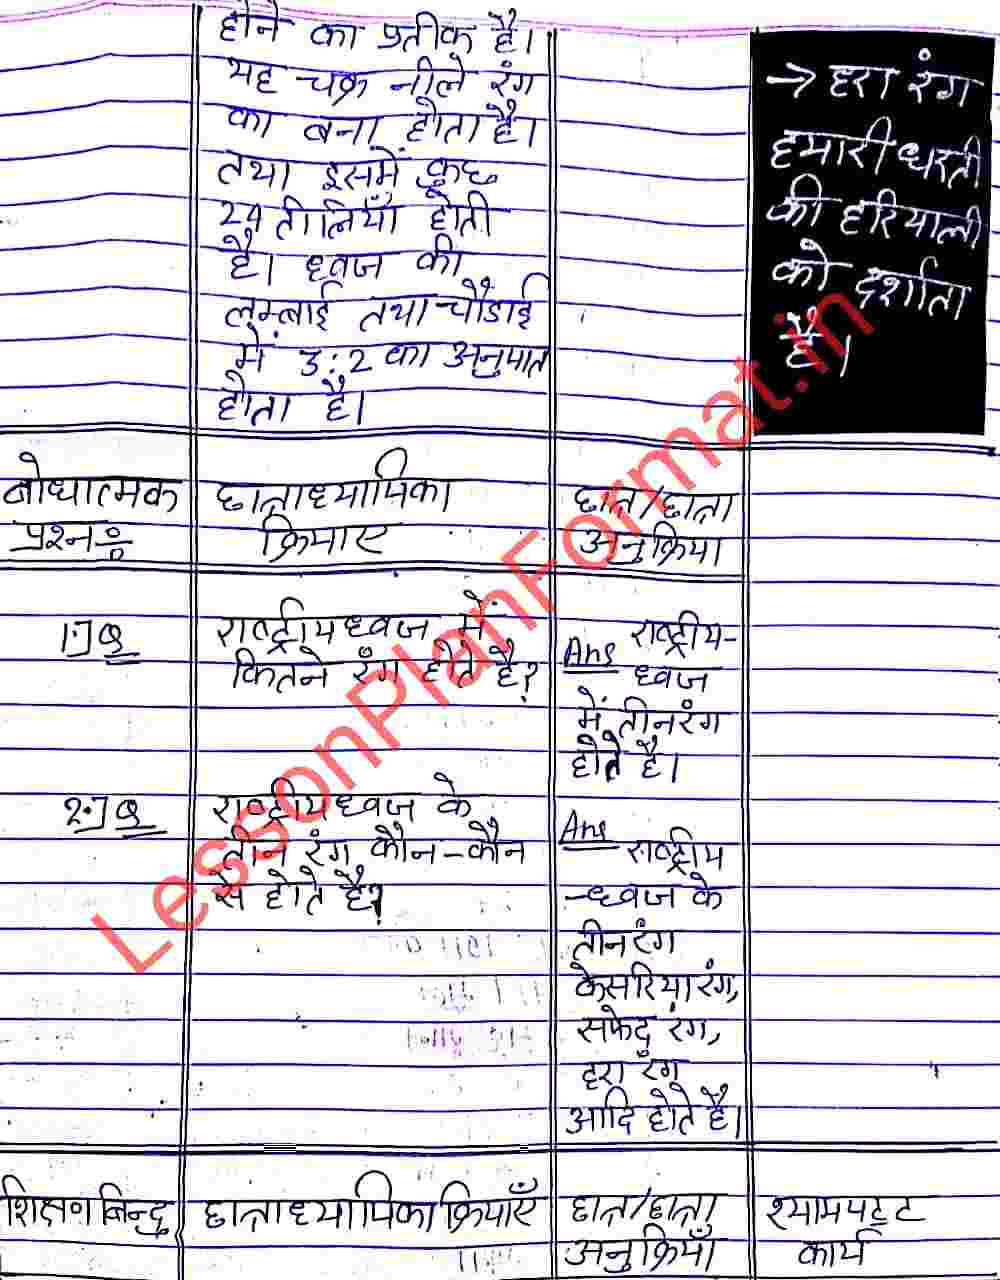 होने का प्रतीक है।
यह चक्र नीले रंग
का बना होता है।
तथा इसमें कुछ
24 तीलियाँ होती
है। ध्वज की
लम्बाई तथा चौडाई
में 3:2 का अनुपात
होता है।
→ हरा रंग
हमारी धरती
की हरियाली
को दर्शाता
है।
बोधात्मक
प्रश्न:
छात्राध्यापिका
क्रियाए
छात्र/छात्रा
अनुक्रिया
1.] Q
राष्ट्रीय ध्वज में
कितने रंग होते है?
Ans राष्ट्रीय-
ध्वज
में तीन रंग
होते है।
2.] Q
राष्ट्रीय ध्वज के
तीन रंग कौन-कौन
से होते है?
Ans
राष्ट्रीय
-ध्वज के
तीन रंग
केसरिया रंग,
सफेद रंग,
हरा रंग
आदि होते है।
शिक्षण बिन्दु
छात्राध्यापिका क्रियाएँ
छात्र/छात्रा
अनुक्रियाँ
श्यामपट्ट
कार्य
LessonPlanFormat.in